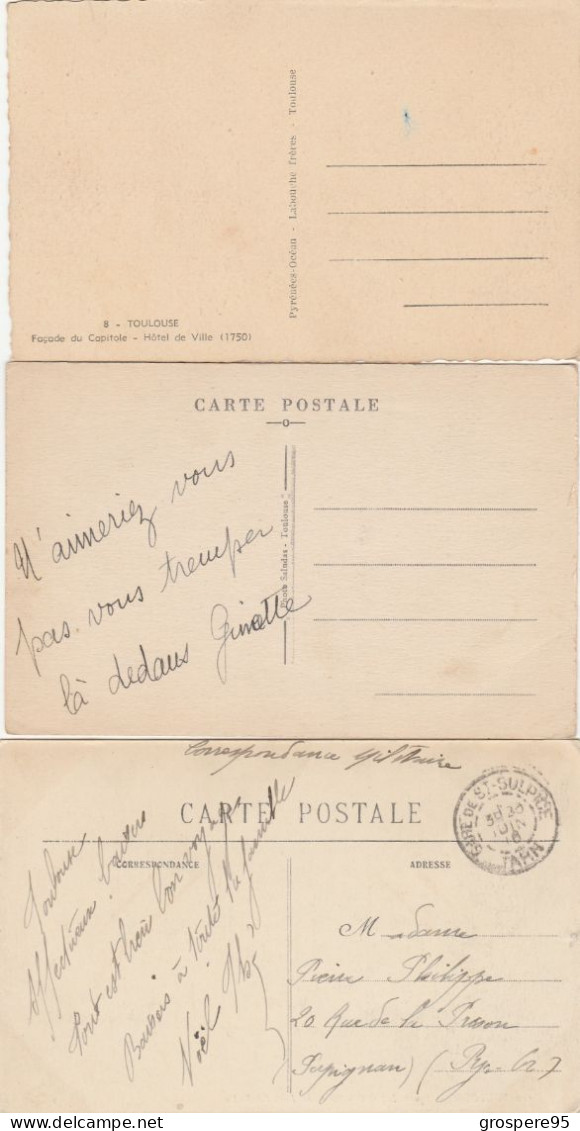 Pyrénées-Océan - Labouche frères - Toulouse
8 - TOULOUSE
Façade du Capitole - Hôtel de Ville (1750)
CARTE POSTALE
N'aimeriez vous
pas vous tremper
là dedans Ginette
Toulouse
Correspondance Militaire
CARTE POSTALE
CORRESPONDANCE
ADRESSE
GARE DE ST-SULPICE
TARN
Toulouse
Affectueux baisers
Tout est bien bon voyage
Baisers à toute la famille
Noël
Madame
Pierre Philippe
20 Rue de la Prison
Perpignan (Py. Or.)
grospere95